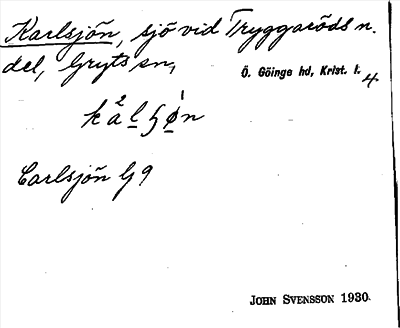 Karlsjön, sjö vid Tryggaröds n.
del, Gryts sn,
Ö. Göinge hd, Krist. l.
4
Carlsjön G 9
JOHN SVENSSON 1930.